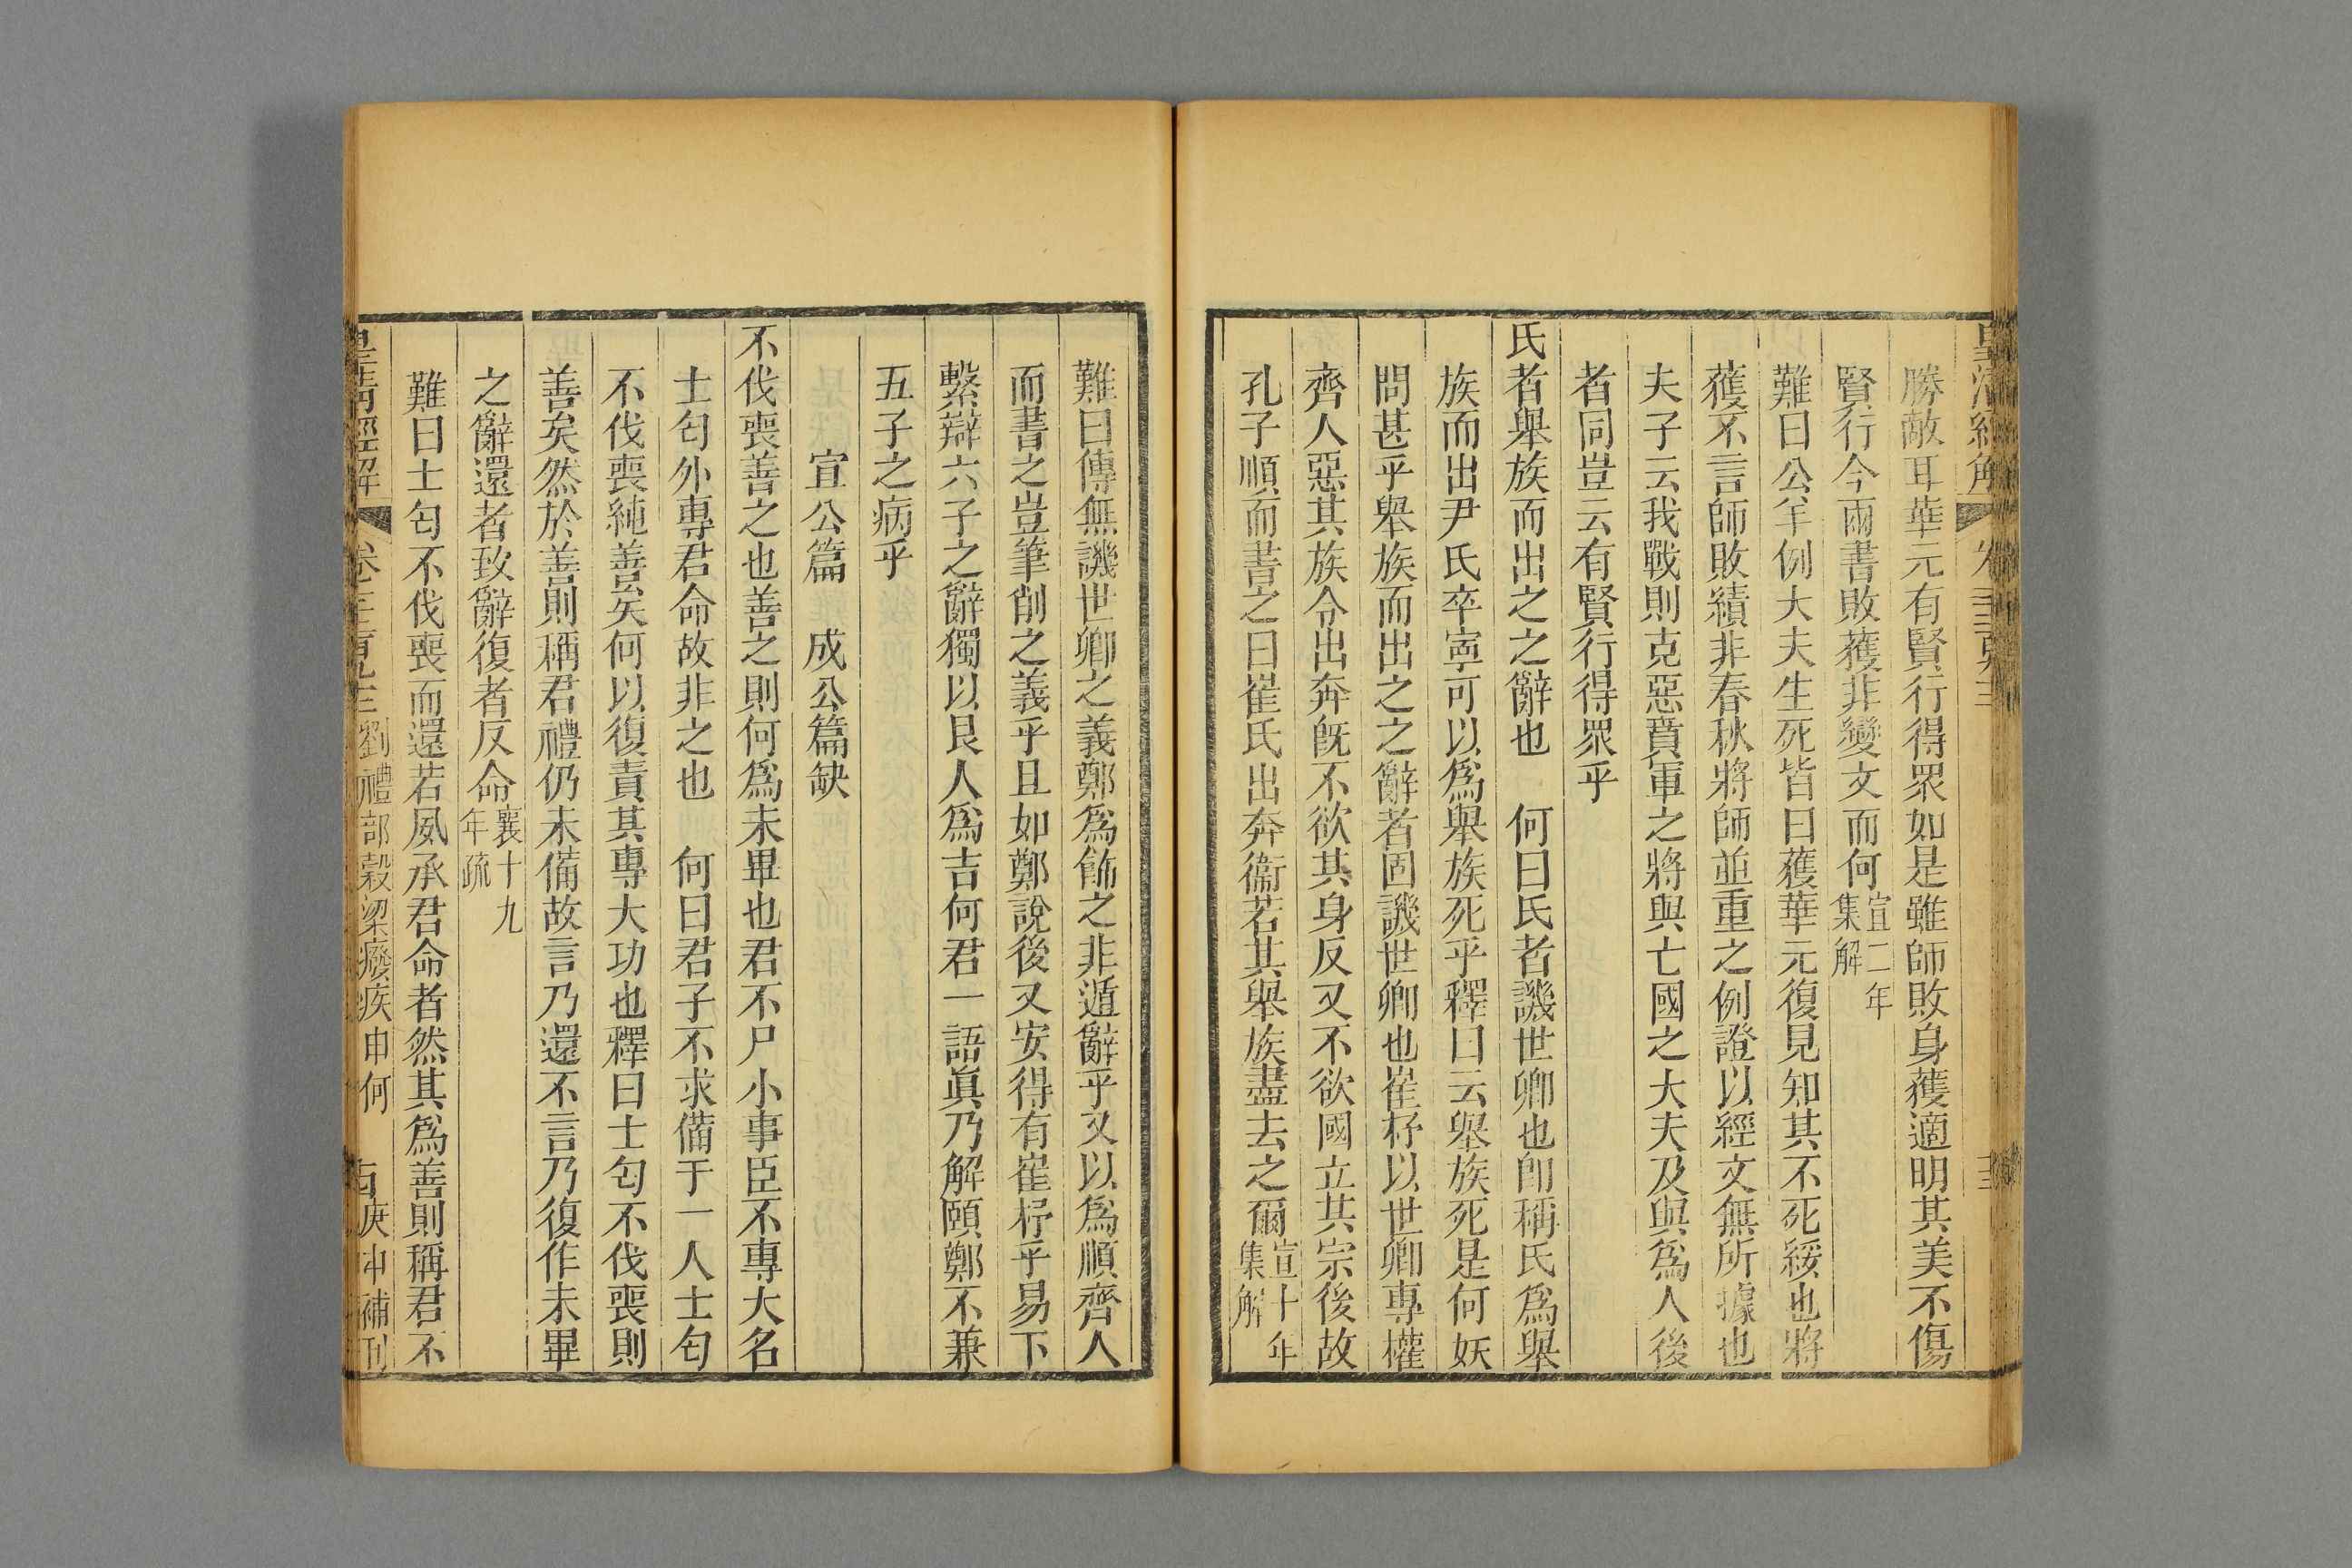 勝敵耳華元有賢行得眾如是雖師敗身獲適明其美不傷
賢行今兩書敗獲非變文而何宣二年集解
難曰公羊例大夫生死皆曰獲華元復見知其不死綏也將
獲不言師敗績非春秋將師並重之例證以經文無所據也
夫子云我戰則克惡賁軍之將與亡國之大夫及與為人後
者同豈云有賢行得眾乎
氏者舉族而出之之辭也 何曰氏者譏世卿也卽稱氏為舉
族而出尹氏卒寧可以為舉族死乎釋曰云舉族死是何妖
問甚乎舉族而出之之辭者固譏世卿也崔杼以世卿專權
齊人惡其族令出奔旣不欲其身反又不欲國立其宗後故
孔子順而書之曰崔氏出奔衞若其舉族盡去之爾宣十年集解
難曰傳無譏世卿之義鄭為飾之非遁辭乎又以為順齊人
而書之豈筆削之義乎且如鄭說後又安得有崔杼乎易下
繫辯六子之辭獨以艮人為吉何君一語眞乃解頤鄭不兼
五子之病乎
宣公篇 成公篇缺
不伐喪善之也善之則何為未畢也君不尸小事臣不專大名
士匄外專君命故非之也 何曰君子不求備于一人士匄
不伐喪純善矣何以復責其專大功也釋曰士匄不伐喪則
善矣然於善則稱君禮仍未備故言乃還不言乃復作未畢
之辭還者致辭復者反命襄十九年疏
難曰士匄不伐喪而還若夙承君命者然其為善則稱君不
皇清經解 卷 劉禮部穀梁癈疾申何 庚申補刊